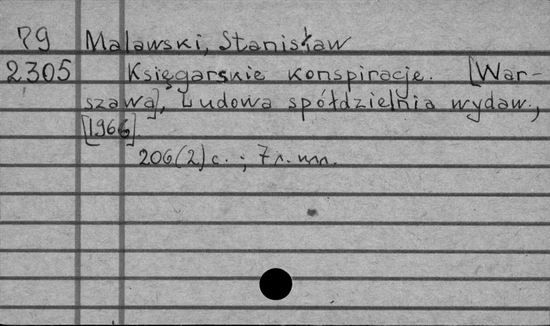 P9 Malawski, Stanisław
2305 Księgarskie konspiracje. [War-
szawa], Ludowa spółdzielnia wydaw.,
[1966].
206(2)c. ; 7 л. илл.